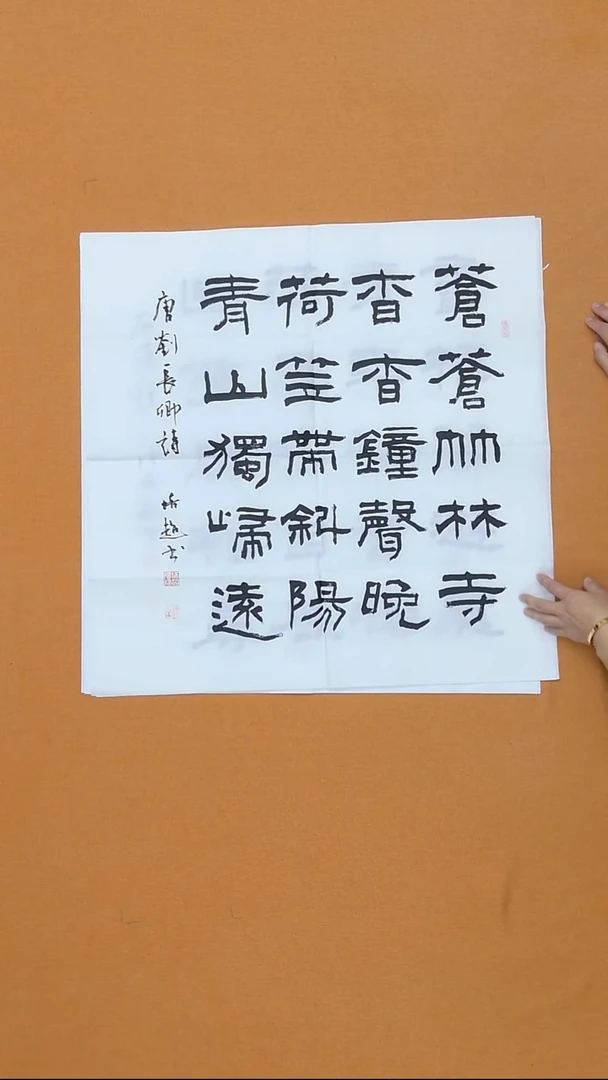 蒼蒼竹林寺
杳杳鐘聲晚
荷笠帶斜陽
青山獨歸遠
唐劉長卿詩